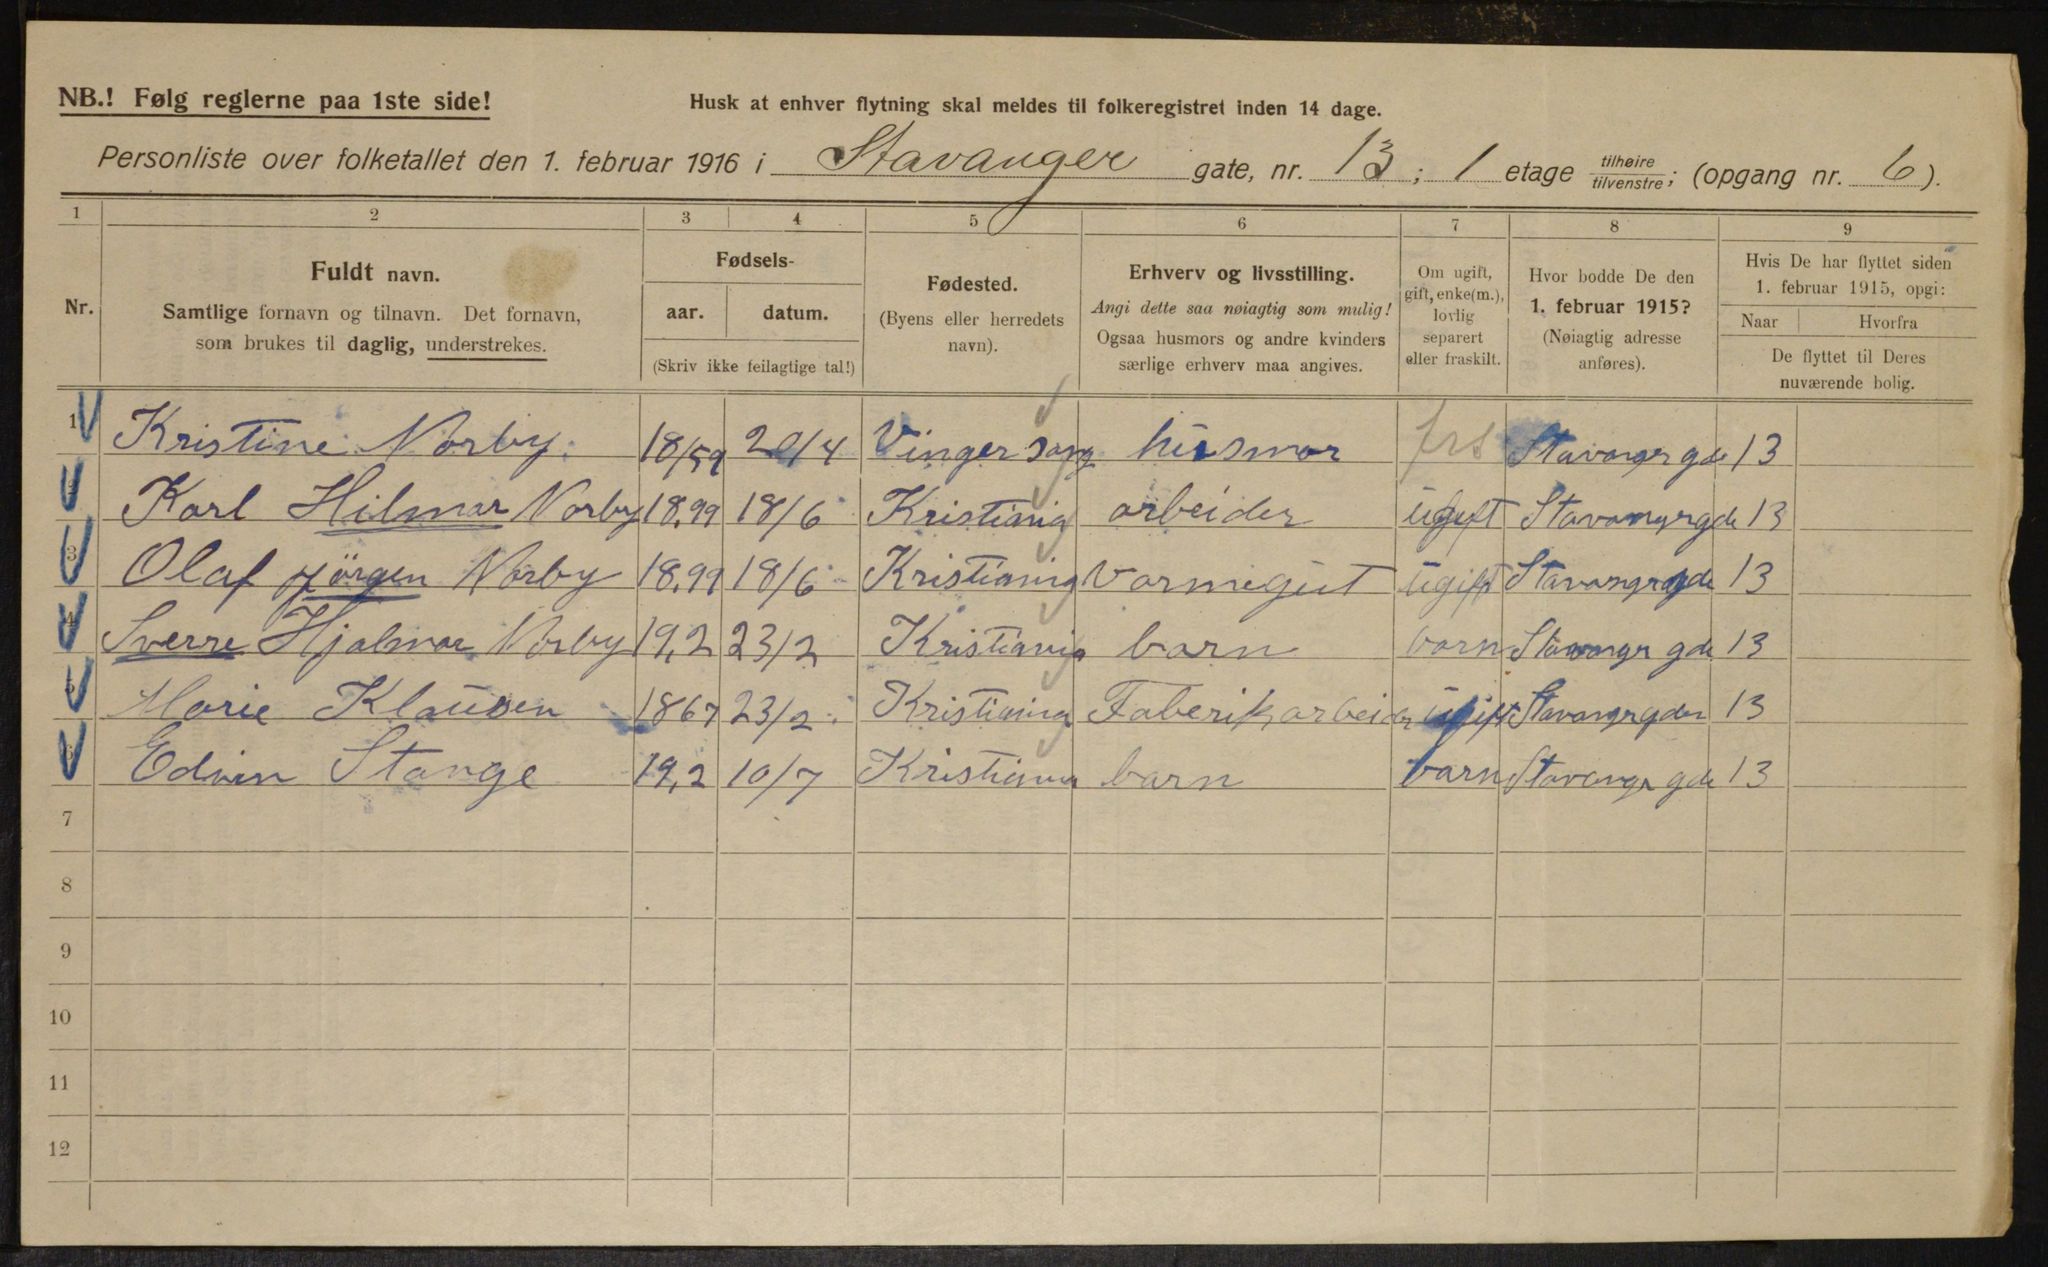 NB.! Følg reglerne paa 1ste side!
Husk at enhver flytning skal meldes til folkeregistret inden 14 dage.
Personliste over folketallet den 1. februar 1916 i Stavanger gate, nr. 13; 1 etage tilhøire/tilvenstre; (opgang nr. 6).
1 2 3 4 5 6 7 8 9
Nr.
Fuldt navn.
Samtlige fornavn og tilnavn. Det fornavn,
som brukes til daglig, understrekes.
Fødsels-
aar. datum.
(Skriv ikke feilagtige tal!)
Fødested.
(Byens eller herredets
navn).
Erhverv og livsstilling.
Angi dette saa nøiagtig som mulig!
Ogsaa husmors og andre kvinders
særlige erhverv maa angives.
Om ugift,
gift, enke(m.),
lovlig
separert
eller fraskilt.
Hvor bodde De den
1. februar 1915?
(Nøiagtig adresse
anføres).
Hvis De har flyttet siden
1. februar 1915, opgi:
Naar Hvorfra
De flyttet til Deres
nuværende bolig.
1 Kristine Norby 18/59 20/4 Vinger husmor Stavangergde 13
2 Karl Hilmar Norby 18,99 18/6 Kristiania arbeider ugift Stavangergde 13
3 Olaf Jörgen Norby 18,99 18/6 Kristiania ugift Stavangergde 13
4 Sverre Hjalmar Norby 19,2 23/2 Kristiania barn barn Stavanger gde 13
5 Marie Klausen 1867 23/2 Kristiania Faberikarbeider ugift Stavangergden 13
6 Edvin Stange 19,2 10/7 Kristiania barn barn Stavanger gde 13
7
8
9
10
11
12